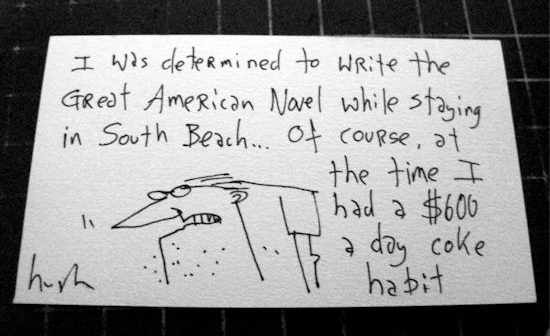 I was determined to write the
Great American Novel while staying
in South Beach... Of course, at
the time I
had a $600
a day coke
habit
hugh